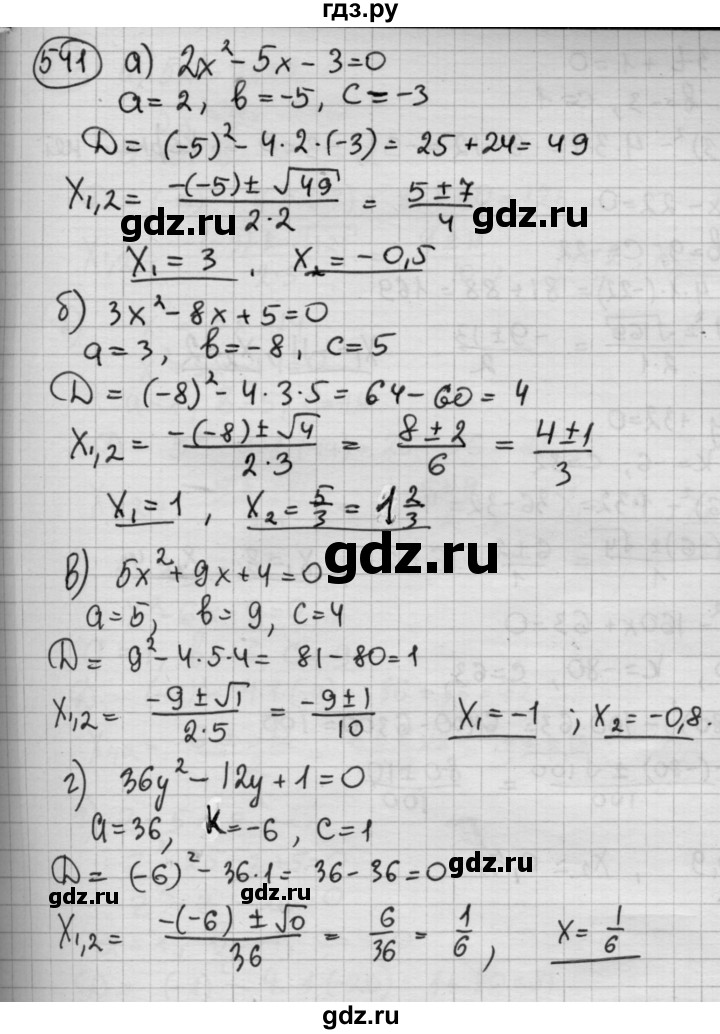 гдз.ру
541 а) 2x² - 5x - 3 = 0
a = 2, b = -5, c = -3
D = (-5)² - 4·2·(-3) = 25 + 24 = 49
x₁,₂ = (-(-5) ± √49)/(2·2) = (5 ± 7)/4
gdz.ru gdz.ru
x₁ = 3, x₂ = -0,5
б) 3x² - 8x + 5 = 0
a = 3, b = -8, c = 5
gdz.ru gdz.ru
D = (-8)² - 4·3·5 = 64 - 60 = 4
x₁,₂ = (-(-8) ± √4)/(2·3) = (8 ± 2)/6 = (4 ± 1)/3
x₁ = 1, x₂ = 5/3 = 1 2/3
gdz.ru
в) 5x² + 9x + 4 = 0
a = 5, b = 9, c = 4
D = 9² - 4·5·4 = 81 - 80 = 1
gdz.ru gdz.ru
x₁,₂ = (-9 ± √1)/(2·5) = (-9 ± 1)/10 x₁ = -1; x₂ = -0,8.
г) 36y² - 12y + 1 = 0
gdz.ru
a = 36, k = -6, c = 1
D = (-6)² - 36·1 = 36 - 36 = 0
gdz.ru gdz.ru
x₁,₂ = (-(-6) ± √0)/36 = 6/36 = 1/6, x = 1/6
gdz.ru
gdz.ru